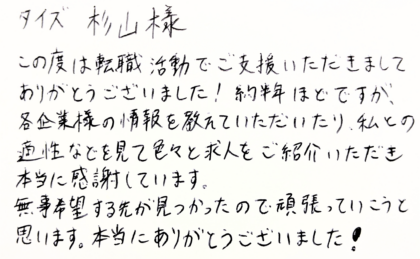 タイズ 杉山様
この度は転職活動でご支援いただきまして
ありがとうございました！約半年ほどですが、
各企業様の情報を教えていただいたり、私との
適性などを見て色々と求人をご紹介いただき
本当に感謝しています。
無事希望する先が見つかったので頑張っていこうと
思います。本当にありがとうございました！